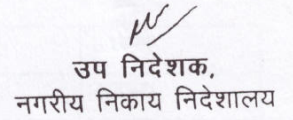 उप निदेशक,
नगरीय निकाय निदेशालय